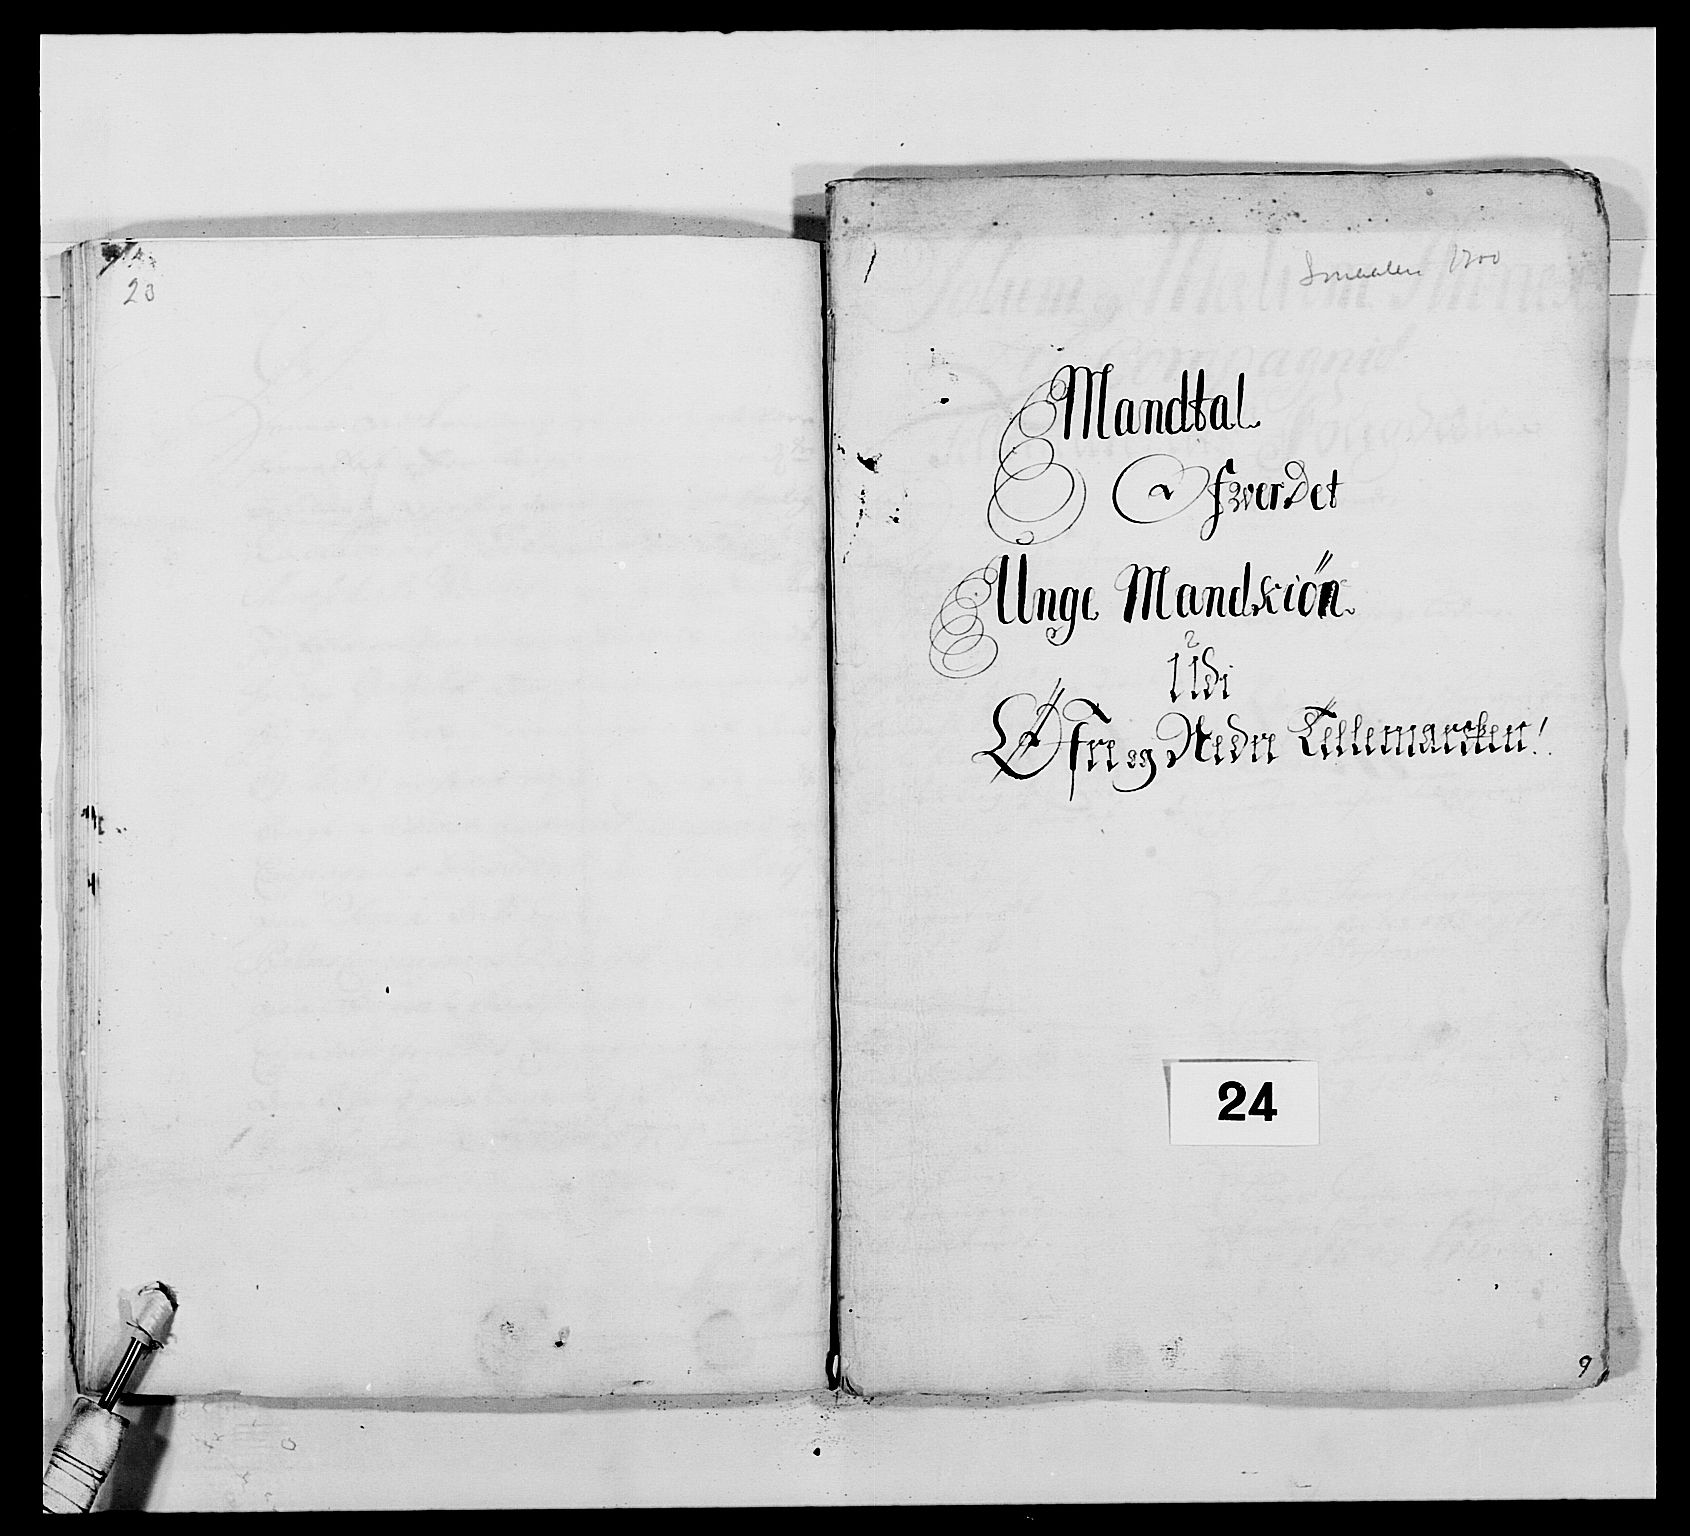 20
1
1700
Mandtal
Ofwerdet
Unge Mandskiön
Udi
Öfre og Nedre Tellemarcken!
24
9